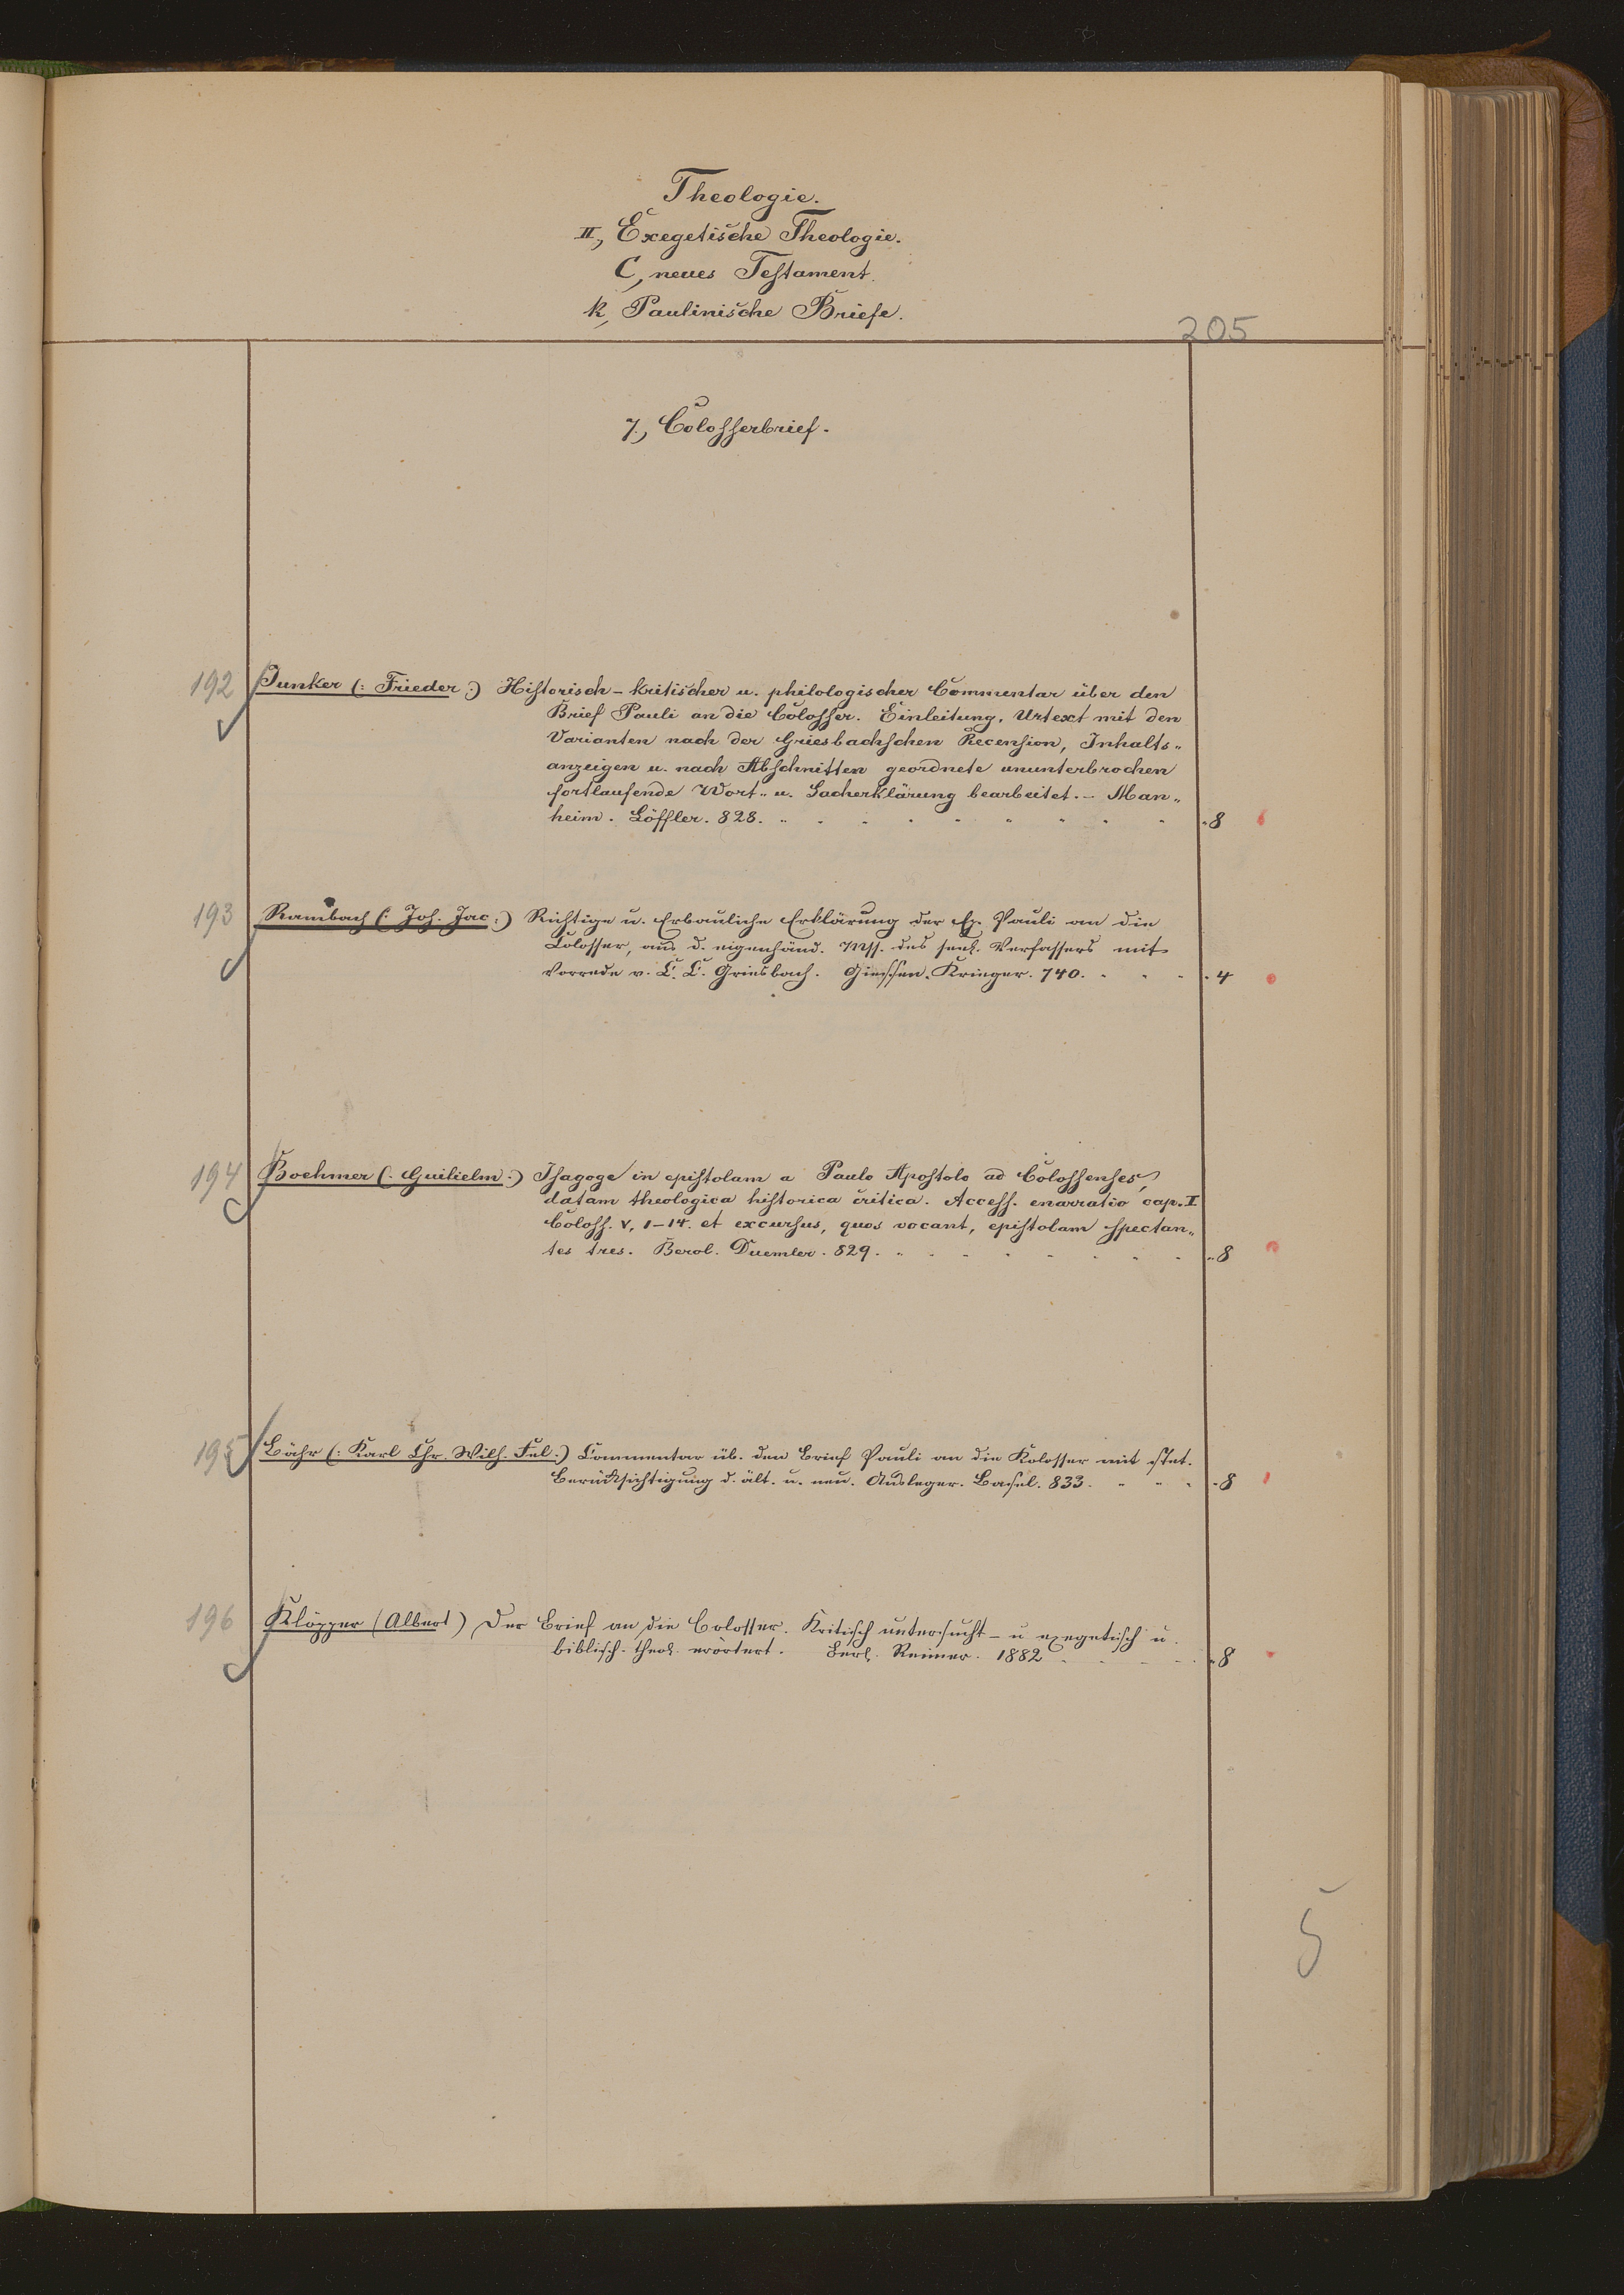 Theologie.
II, Exegetische Theologie.
C, neues Testament.
k, Paulinische Briefe.
205
7., Colosserbrief.
192 Junker (: Frieder :) Historisch-kritischer u. philologischer Commentar über den
Brief Pauli an die Colosser. Einleitung, Urtext mit den
Varianten nach der Griesbachschen Recension, Inhalts-
anzeigen u. nach Abschnitten geordnete ununterbrochen
fortlaufende Wort- u. Sacherklärung bearbeitet. - Man-
heim. Löffler. 828. 8
193 Rambach (: Joh. Jac :) Richtige u. Erbauliche Erklärung der Ep. Pauli an die
Colosser, aus d. eigenhänd. Mss. des seel. Verfassers mit
Vorrede v. C. C. Griesbach. Giessen. Krieger. 740. 4
194 Boehmer (: Guilielm :) Isagoge in epistolam a Paulo Apostolo ad Colossenses,
datam theologica historica critica. Access. enarratio cap. I
Coloss. V, 1-14. et excursus, quos vocant, epistolam spectan-
tes tres. Berol. Duemler. 829. 8
195 Bähr (: Karl Chr. Wilh. Fel :) Commentar üb. den Brief Pauli an die Kolosser mit stet.
Berücksichtigung d. ält. u. neu. Ausleger. Basel. 833. 8
196 Klöpper (Albert) Der Brief an die Colosser. Kritisch untersucht - u exegetisch u.
biblisch-theol. erörtert. Berl. Reimer. 1882 8
5